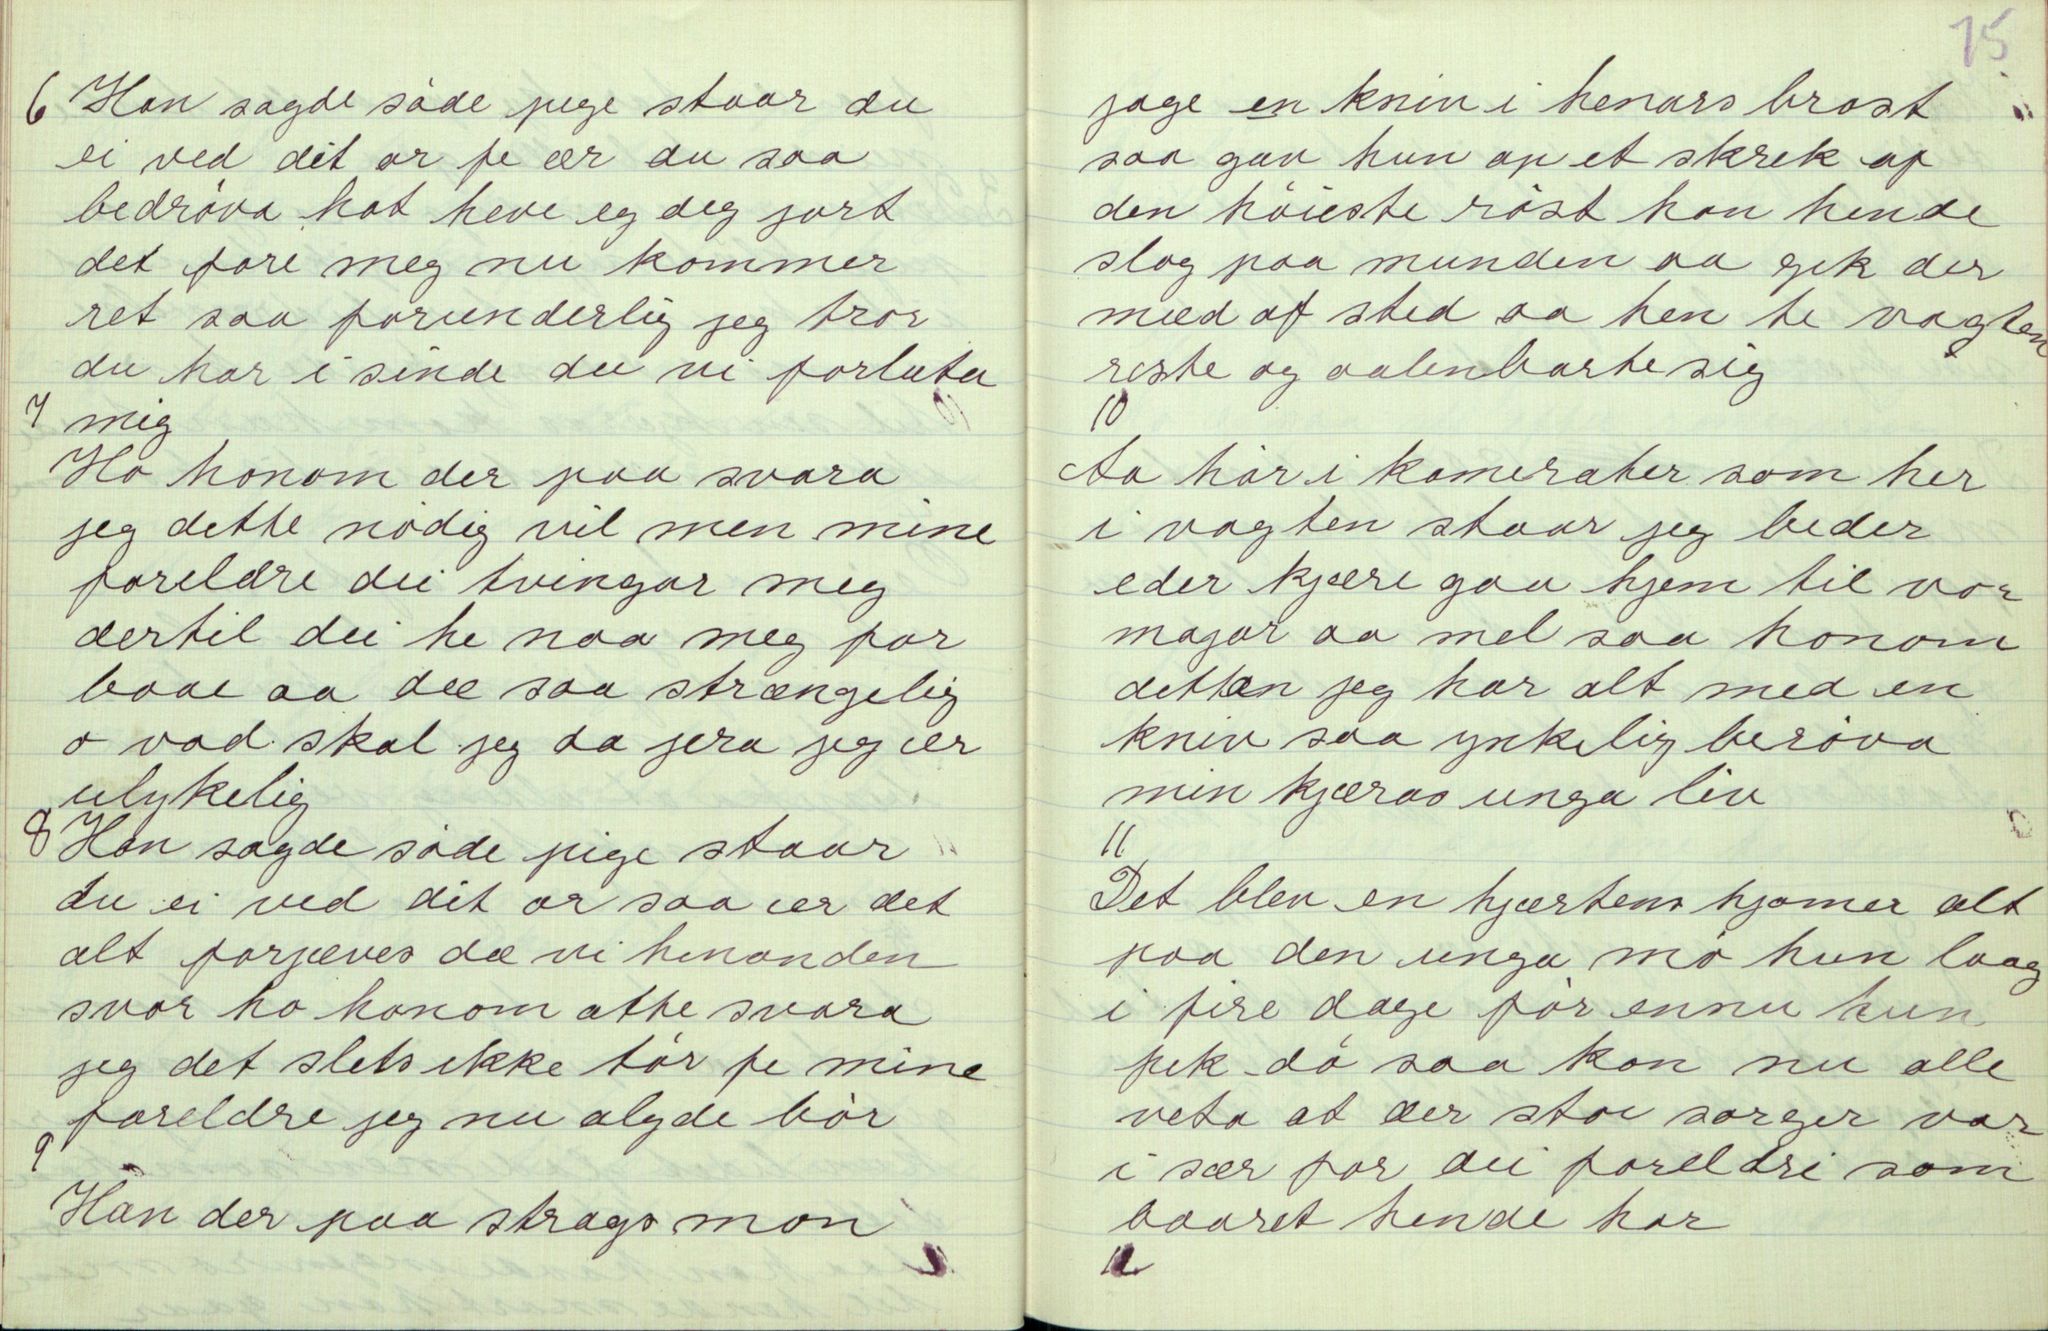 6 Han sagde söde pige staar du
ei ved dit or fe ær du saa
bedröva hat heve eg deg jort
det fore meg nu kommer
ret saa forunderlig jeg tror
du har i sinde du vi forlata
7 mig
Ho honom der paa svara
jeg dette nödig vil men mine
foreldre dei tvingar meg
dertil dei he naa meg for
boae aa dæ saa strængelig
o vad skal jeg da jera jeg ær
ulykelig
8 Han sagde söde pige staar
du ei ved dit or saa ær det
alt forjæves dæ vi henanden
svor ho honom atte svara
jeg det slets ikke tör fe mine
foreldre jeg nu alyde bör
9
Han der paa strags mon
15
jage en kniv i henars brost
saa gav hun op et skrek af
den höieste röst han hende
slog paa munden aa gek der
mæd af sted aa hen te vagten
reste og aalenbarte sig
10
Aa hör i kamerater som her
i vagten staar jeg beder
eder kjære gaa hjem til vor
major aa mel saa honom
dettan jeg har alt med en
kniv saa ynkelig beröva
min kjæras unga liv
11
Det blev en hjærtens hjamer alt
paa den unga mö hun laag
i fire dage för ennu hun
fek dö saa kan nu alle
veta at der stoe sorger var
i sær for dei foreldri som
baaret hende har
12